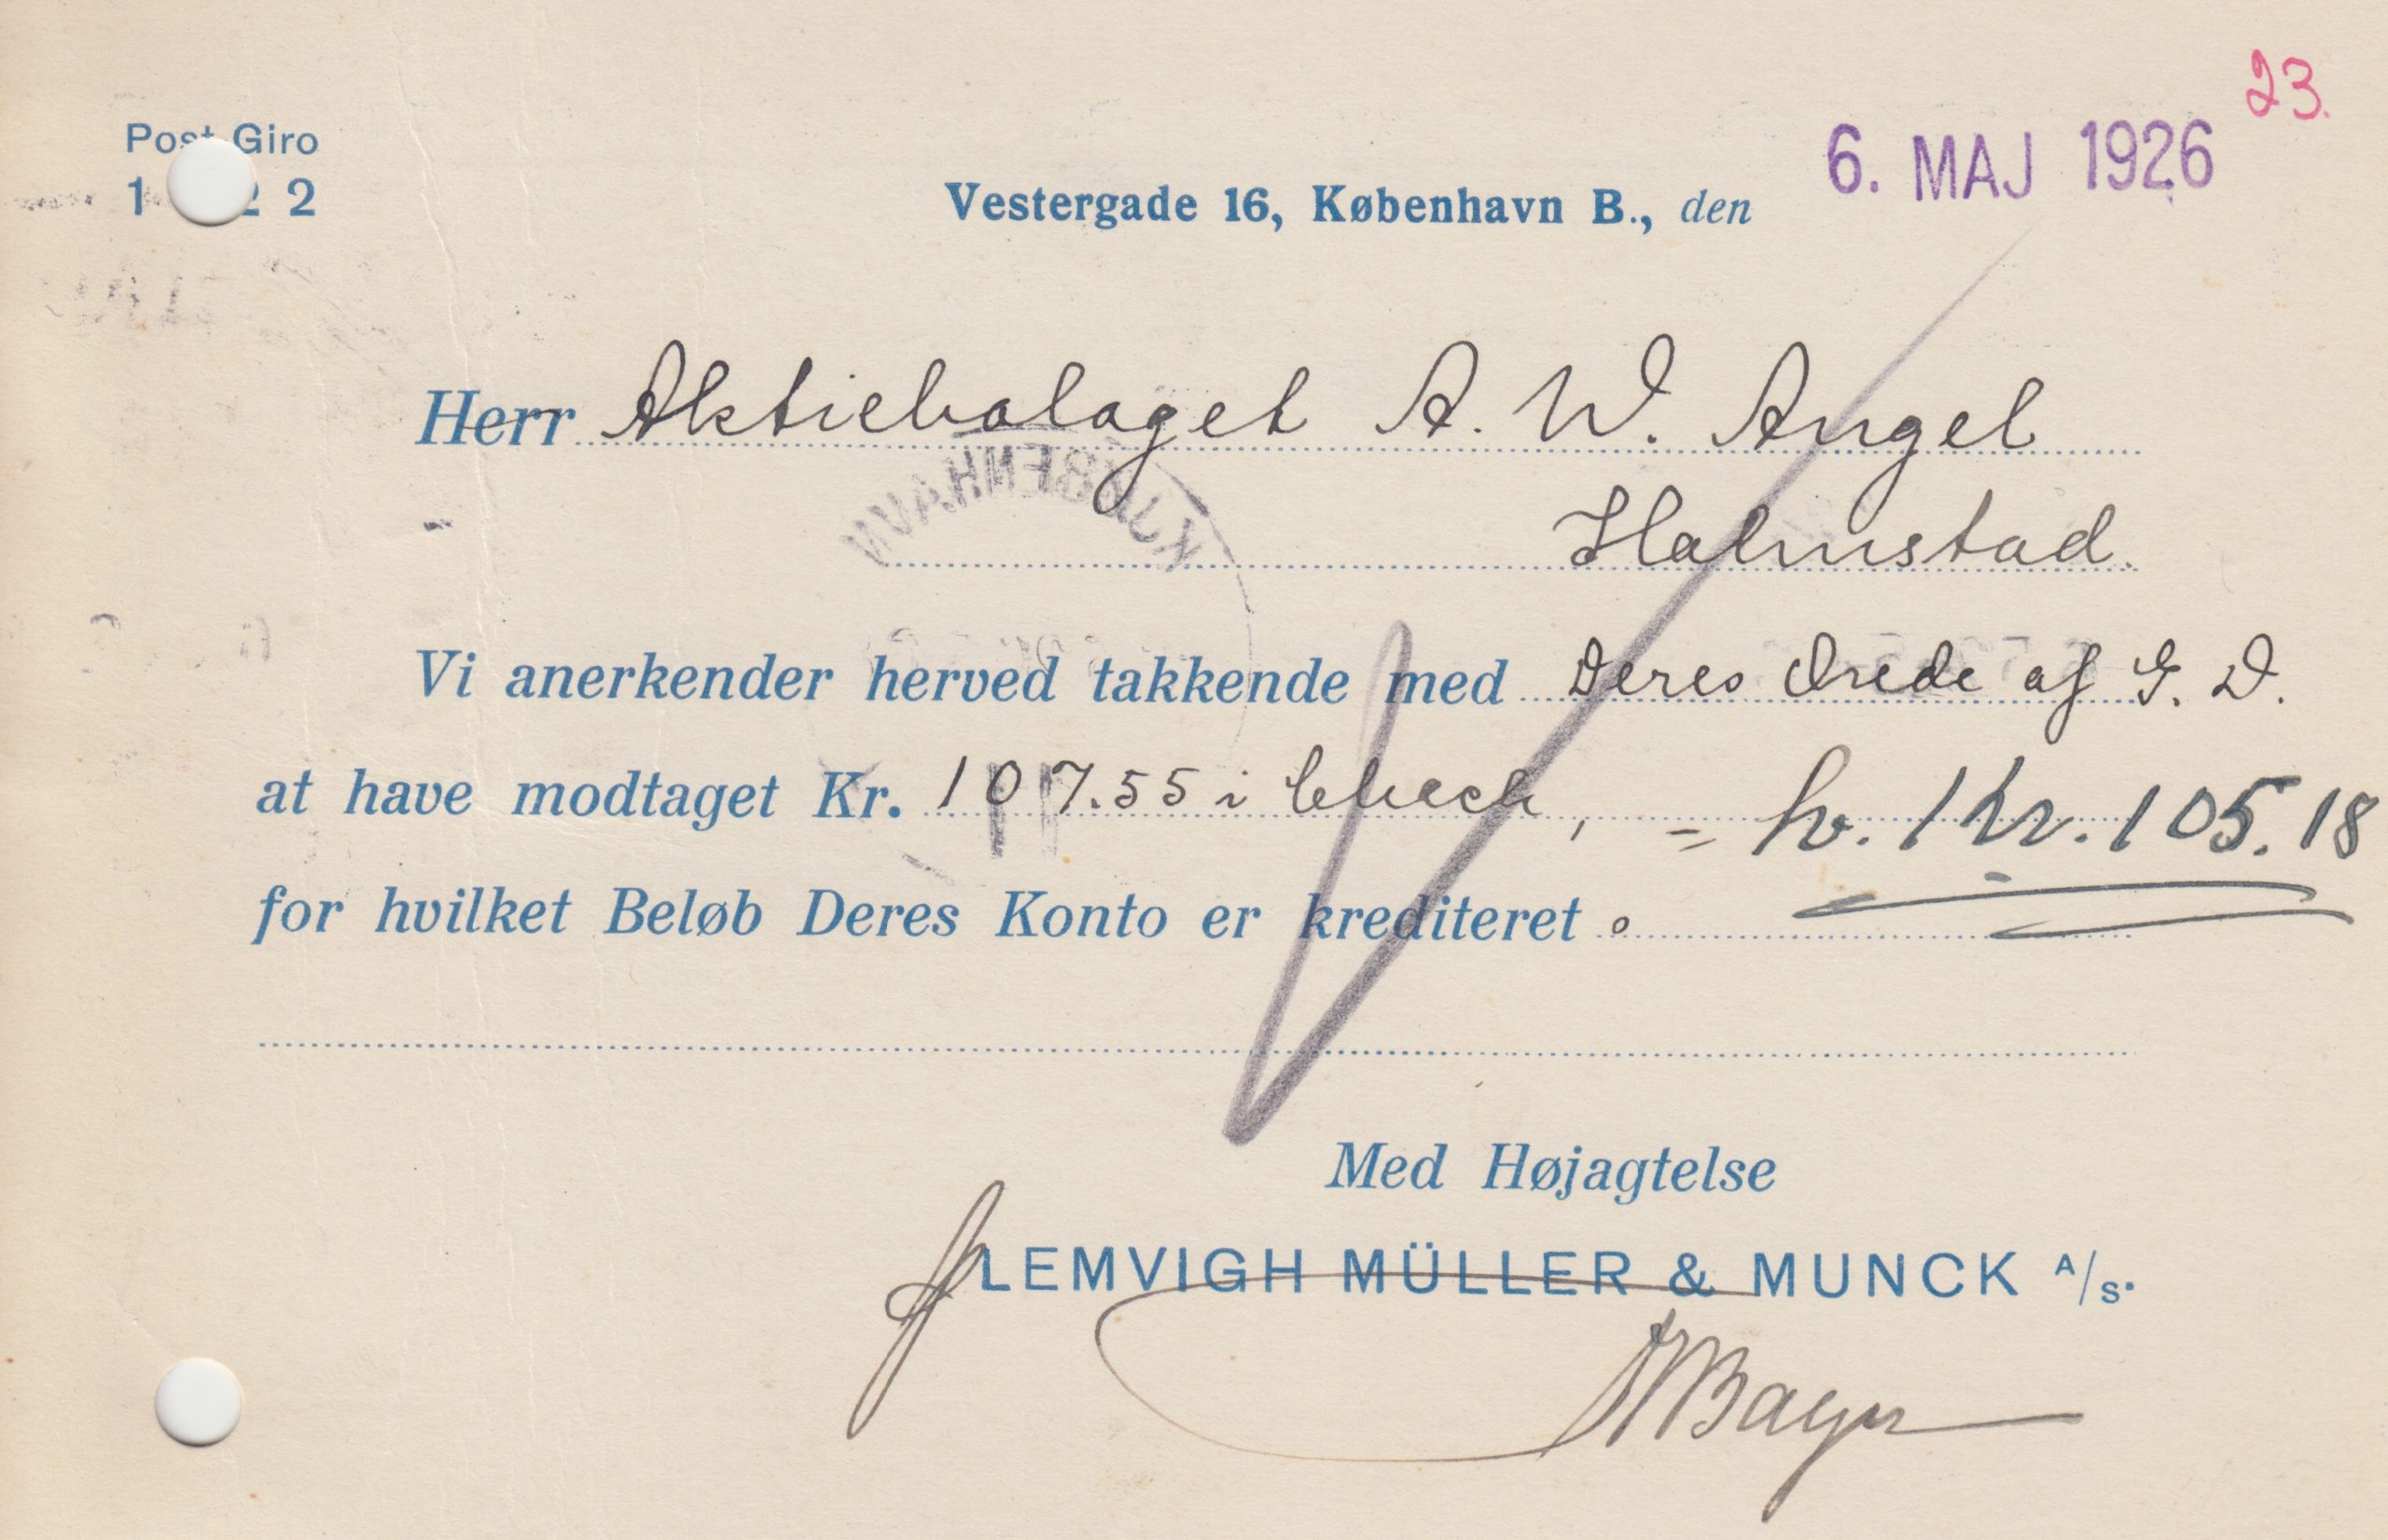 23.
Post Giro
1 2 2
Vestergade 16, København B., den 6. MAJ 1926
Herr Aktiebolaget A. W. Angel
Halmstad.
KJØBENHAVN
Vi anerkender herved takkende med Deres Ærede af G. D.
at have modtaget Kr. 107.55 i Check, = kr. 105.18
for hvilket Beløb Deres Konto er krediteret.
Med Højagtelse
LEMVIGH MÜLLER & MUNCK A/S.